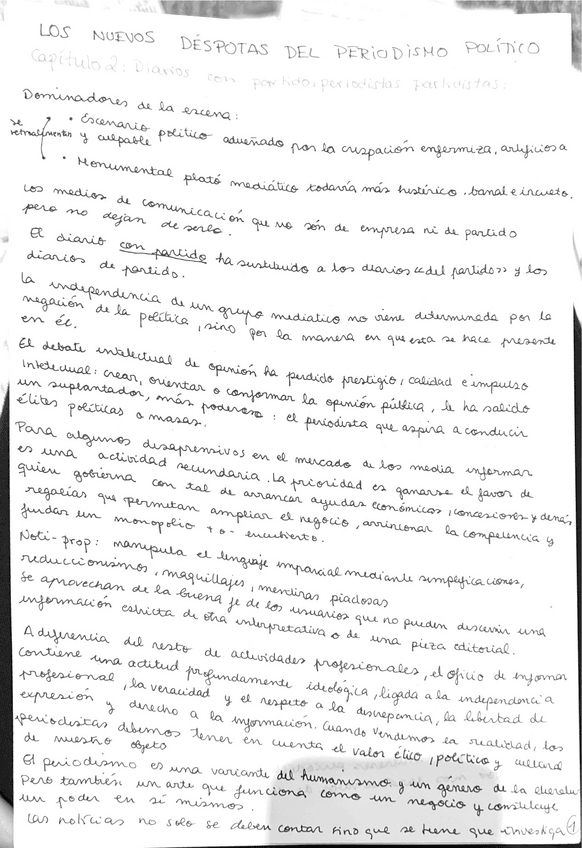 LOS NUEVOS DÉSPOTAS DEL PERIODISMO POLÍTICO
Capítulo 2: Diarios con partido, periodistas partidistas:
Dominadores de la escena:
• Escenario político adueñado por la crispación enfermiza, artificiosa
y culpable
se retroalimentan
• Monumental plató mediático todavía más histérico, banal e incierto.
Los medios de comunicación que no són de empresa ni de partido
pero no dejan de serlo.
El diario con partido ha sustituido a los diarios «del partido» y los
diarios de partido.
La independencia de un grupo mediático no viene determinada por la
negación de la política, sino por la manera en que esta se hace presente
en él.
El debate intelectual de opinión ha perdido prestigio, calidad e impulso
Intelectual: crear, orientar o conformar la opinión pública, le ha salido
un suplantador, más poderoso: el periodista que aspira a conducir
élites políticas o masas.
Para algunos desaprensivos en el mercado de los media informar
es una actividad secundaria. La prioridad es ganarse el favor de
quien gobierna con tal de arrancar ayudas económicas, concesiones y demás
regalías que permitan ampliar el negocio, arrinconar la competencia y
fundar un monopolio + o - encubierto.
Noti-prop: manipula el lenguaje imparcial mediante simplificaciones,
reduccionismos, maquillajes, mentiras piadosas
Se aprovechan de la buena fe de los usuarios que no pueden discernir una
información estricta de otra interpretativa o de una pieza editorial.
A diferencia del resto de actividades profesionales, el oficio de informar
contiene una actitud profundamente ideológica, ligada a la independencia
profesional, la veracidad y el respeto a la discrepancia, la libertad de
expresión y derecho a la información. Cuando vendemos la realidad, los
periodistas debemos tener en cuenta el valor ético, político y cultural
de nuestro objeto
El periodismo es una variante del humanismo y un género de la
pero también un arte que funciona como un negocio y constituye
un poder en sí mismos.
Las noticias no solo se deben contar sino que se tiene que investiga
1